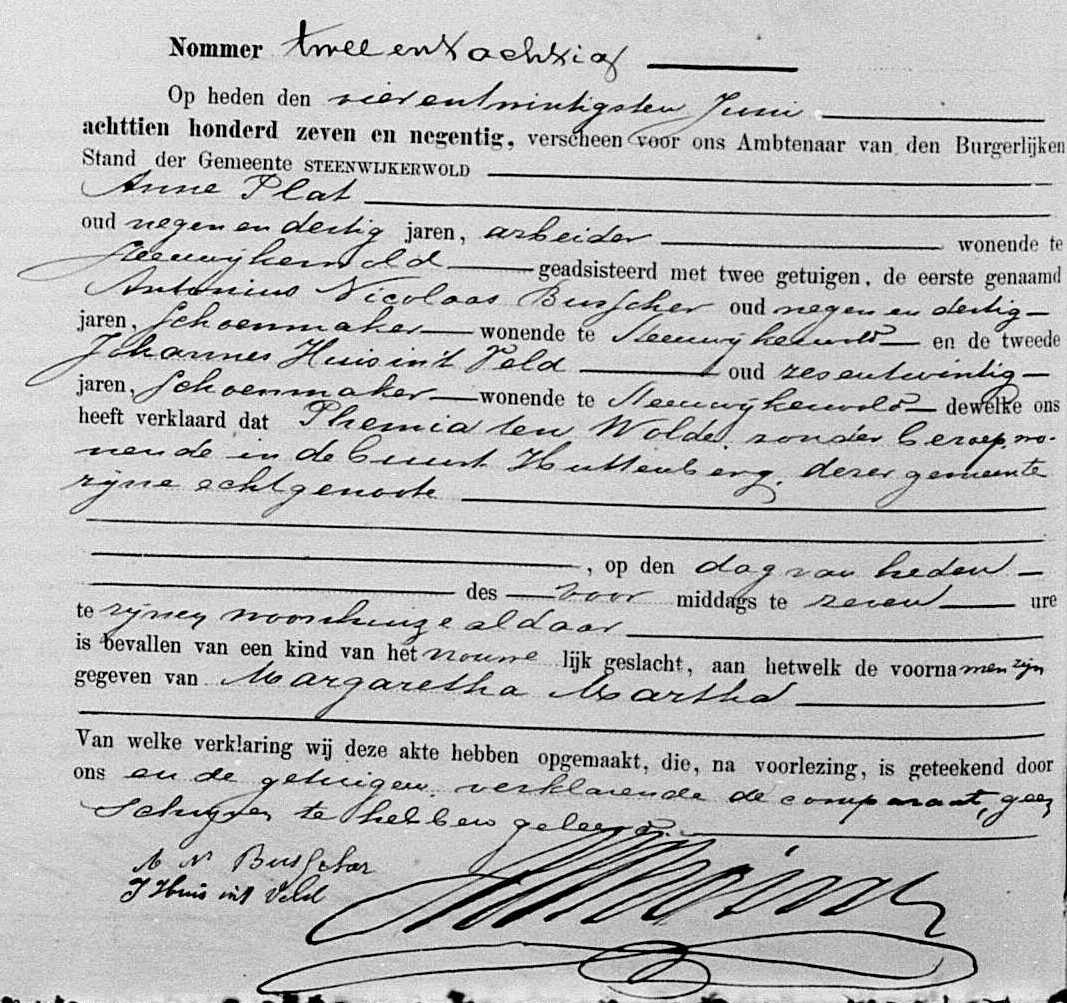 Nommer twee en tachtig
Op heden den vierentwintigsten Juni
achttien honderd zeven en negentig, verscheen voor ons Ambtenaar van den Burgerlijken
Stand der Gemeente STEENWIJKERWOLD
Anne Plat
oud negen en dertig jaren, arbeider wonende te
Steenwijkerwold geadsisteerd met twee getuigen, de eerste genaamd
Antonius Nicolaas Busscher oud negen en dertig
jaren, Schoenmaker wonende te Steenwijkerwold en de tweede
Johannes Huis in't Veld oud zesentwintig
jaren, Schoenmaker wonende te Steenwijkerwold dewelke ons
heeft verklaard dat Phemia ten Wolde zonder beroep, wo-
nende in de buurt Huttenberg, dezer gemeente
zijne echtgenoote
, op den dag van heden
des voor middags te zeven ure
te zijnen woonhuize aldaar
is bevallen van een kind van het vrouwe lijk geslacht, aan hetwelk de voornamen zijn
gegeven van Margaretha Martha
Van welke verklaring wij deze akte hebben opgemaakt, die, na voorlezing, is geteekend door
ons en de getuigen verklarende de comparant, geen
Schrijven te hebben geleerd.
A N Busscher
J Huis in't Veld